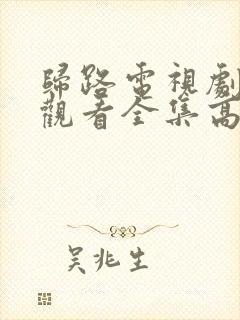 歸路電視劇
觀看全集高
吳兆生